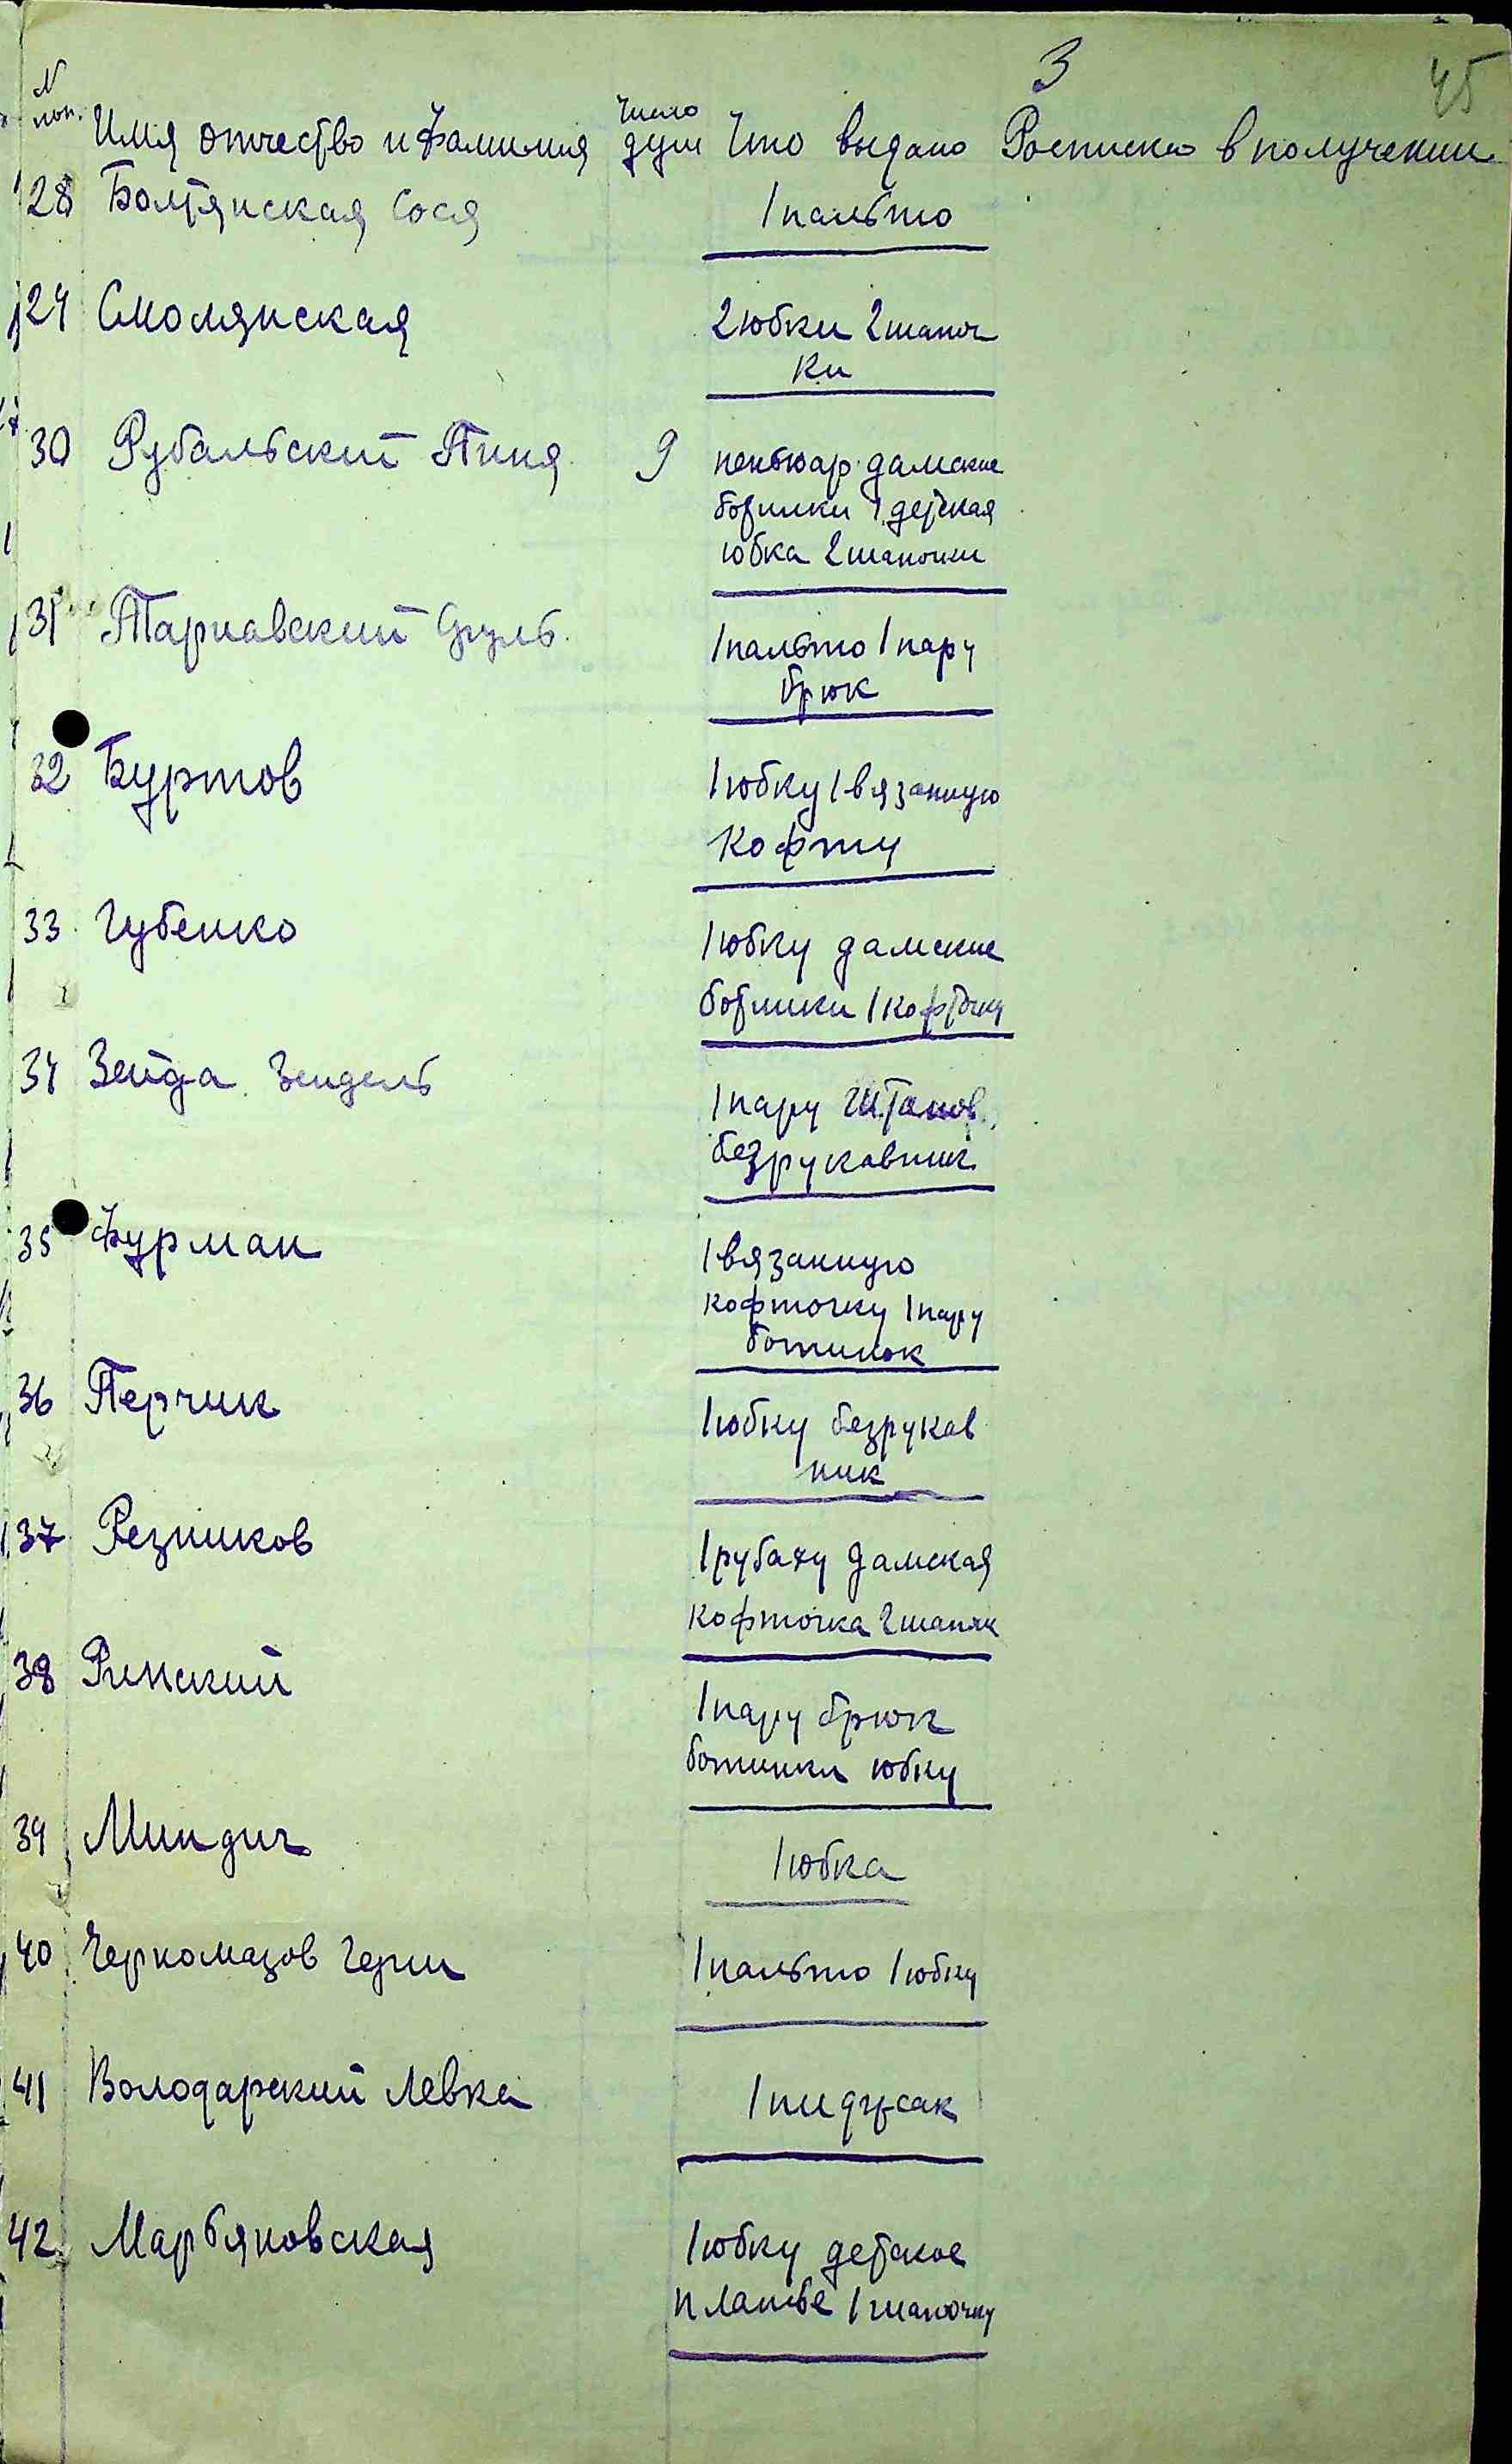 3
45
N
поп.
Имя отчество и фамилия Число душ Что выдано Росписка в получении
28 Болтянская Сося 1 пальто
29 Смолянская 2 юбки 2 шапоч
ки
30 Рубальский Пиня 9 пеньюар дамские
ботинки 1 детская
юбка 2 шапочки
31 Тарнавский 1 пальто 1 пару
брюк
32 Буртов 1 юбку 1 вязанную
кофту
33 Губенко 1 юбку дамские
ботинки 1 кофточку
34 Зейда Зендель 1 пару штанов
безрукавник
35 Фурман 1 вязанную
кофточку 1 пару
ботинок
36 Перчик 1 юбку безрукав
ник
37 Резников 1 рубаху дамская
кофточка 2 шапки
38 Римский 1 пару брюк
ботинки юбку
39 Миндич 1 юбка
40 Черномазов Герш 1 пальто 1 юбку
41 Володарский Левка 1 пиджак
42 Марьяновская 1 юбку детское
платье 1 шапочку